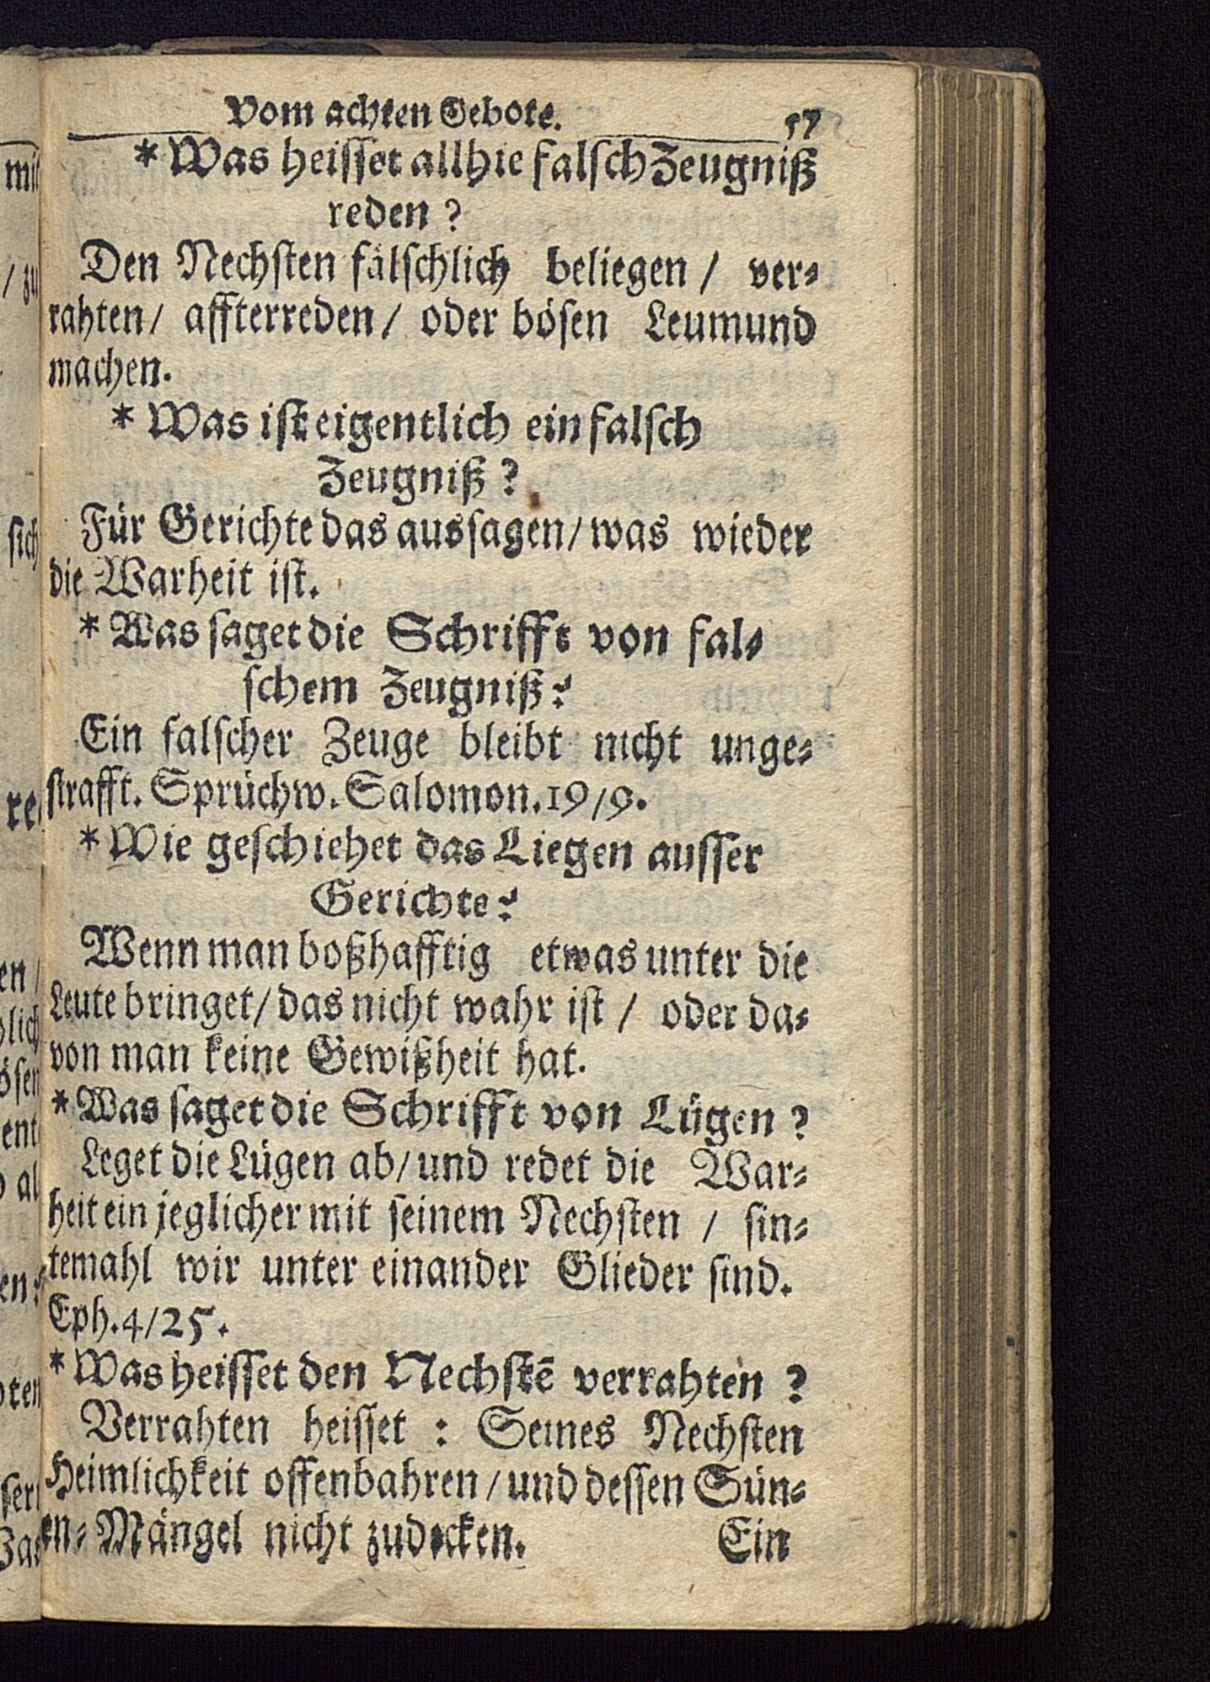 Vom achten Gebote. 57
* Was heisset allhie falsch Zeugniß
reden ?
Den Nechsten fälschlich beliegen / ver-
rahten / affterreden / oder bösen Leumund
machen.
* Was ist eigentlich ein falsch
Zeugniß ?
Für Gerichte das aussagen / was wieder
die Warheit ist.
* Was saget die Schrifft von fal-
schem Zeugniß ?
Ein falscher Zeuge bleibt nicht unge-
strafft. Sprüchw. Salomon. 19 / 9.
* Wie geschiehet das Liegen ausser
Gerichte ?
Wenn man boßhafftig etwas unter die
Leute bringet / das nicht wahr ist / oder da-
von man keine Gewißheit hat.
* Was saget die Schrifft von Lügen ?
Leget die Lügen ab / und redet die War-
heit ein jeglicher mit seinem Nechsten / sin-
temahl wir unter einander Glieder sind.
Eph. 4 / 25.
* Was heisset den Nechstē verrahten ?
Verrahten heisset : Seines Nechsten
Heimlichkeit offenbahren / und dessen Sün-
en- Mängel nicht zudecken. Ein